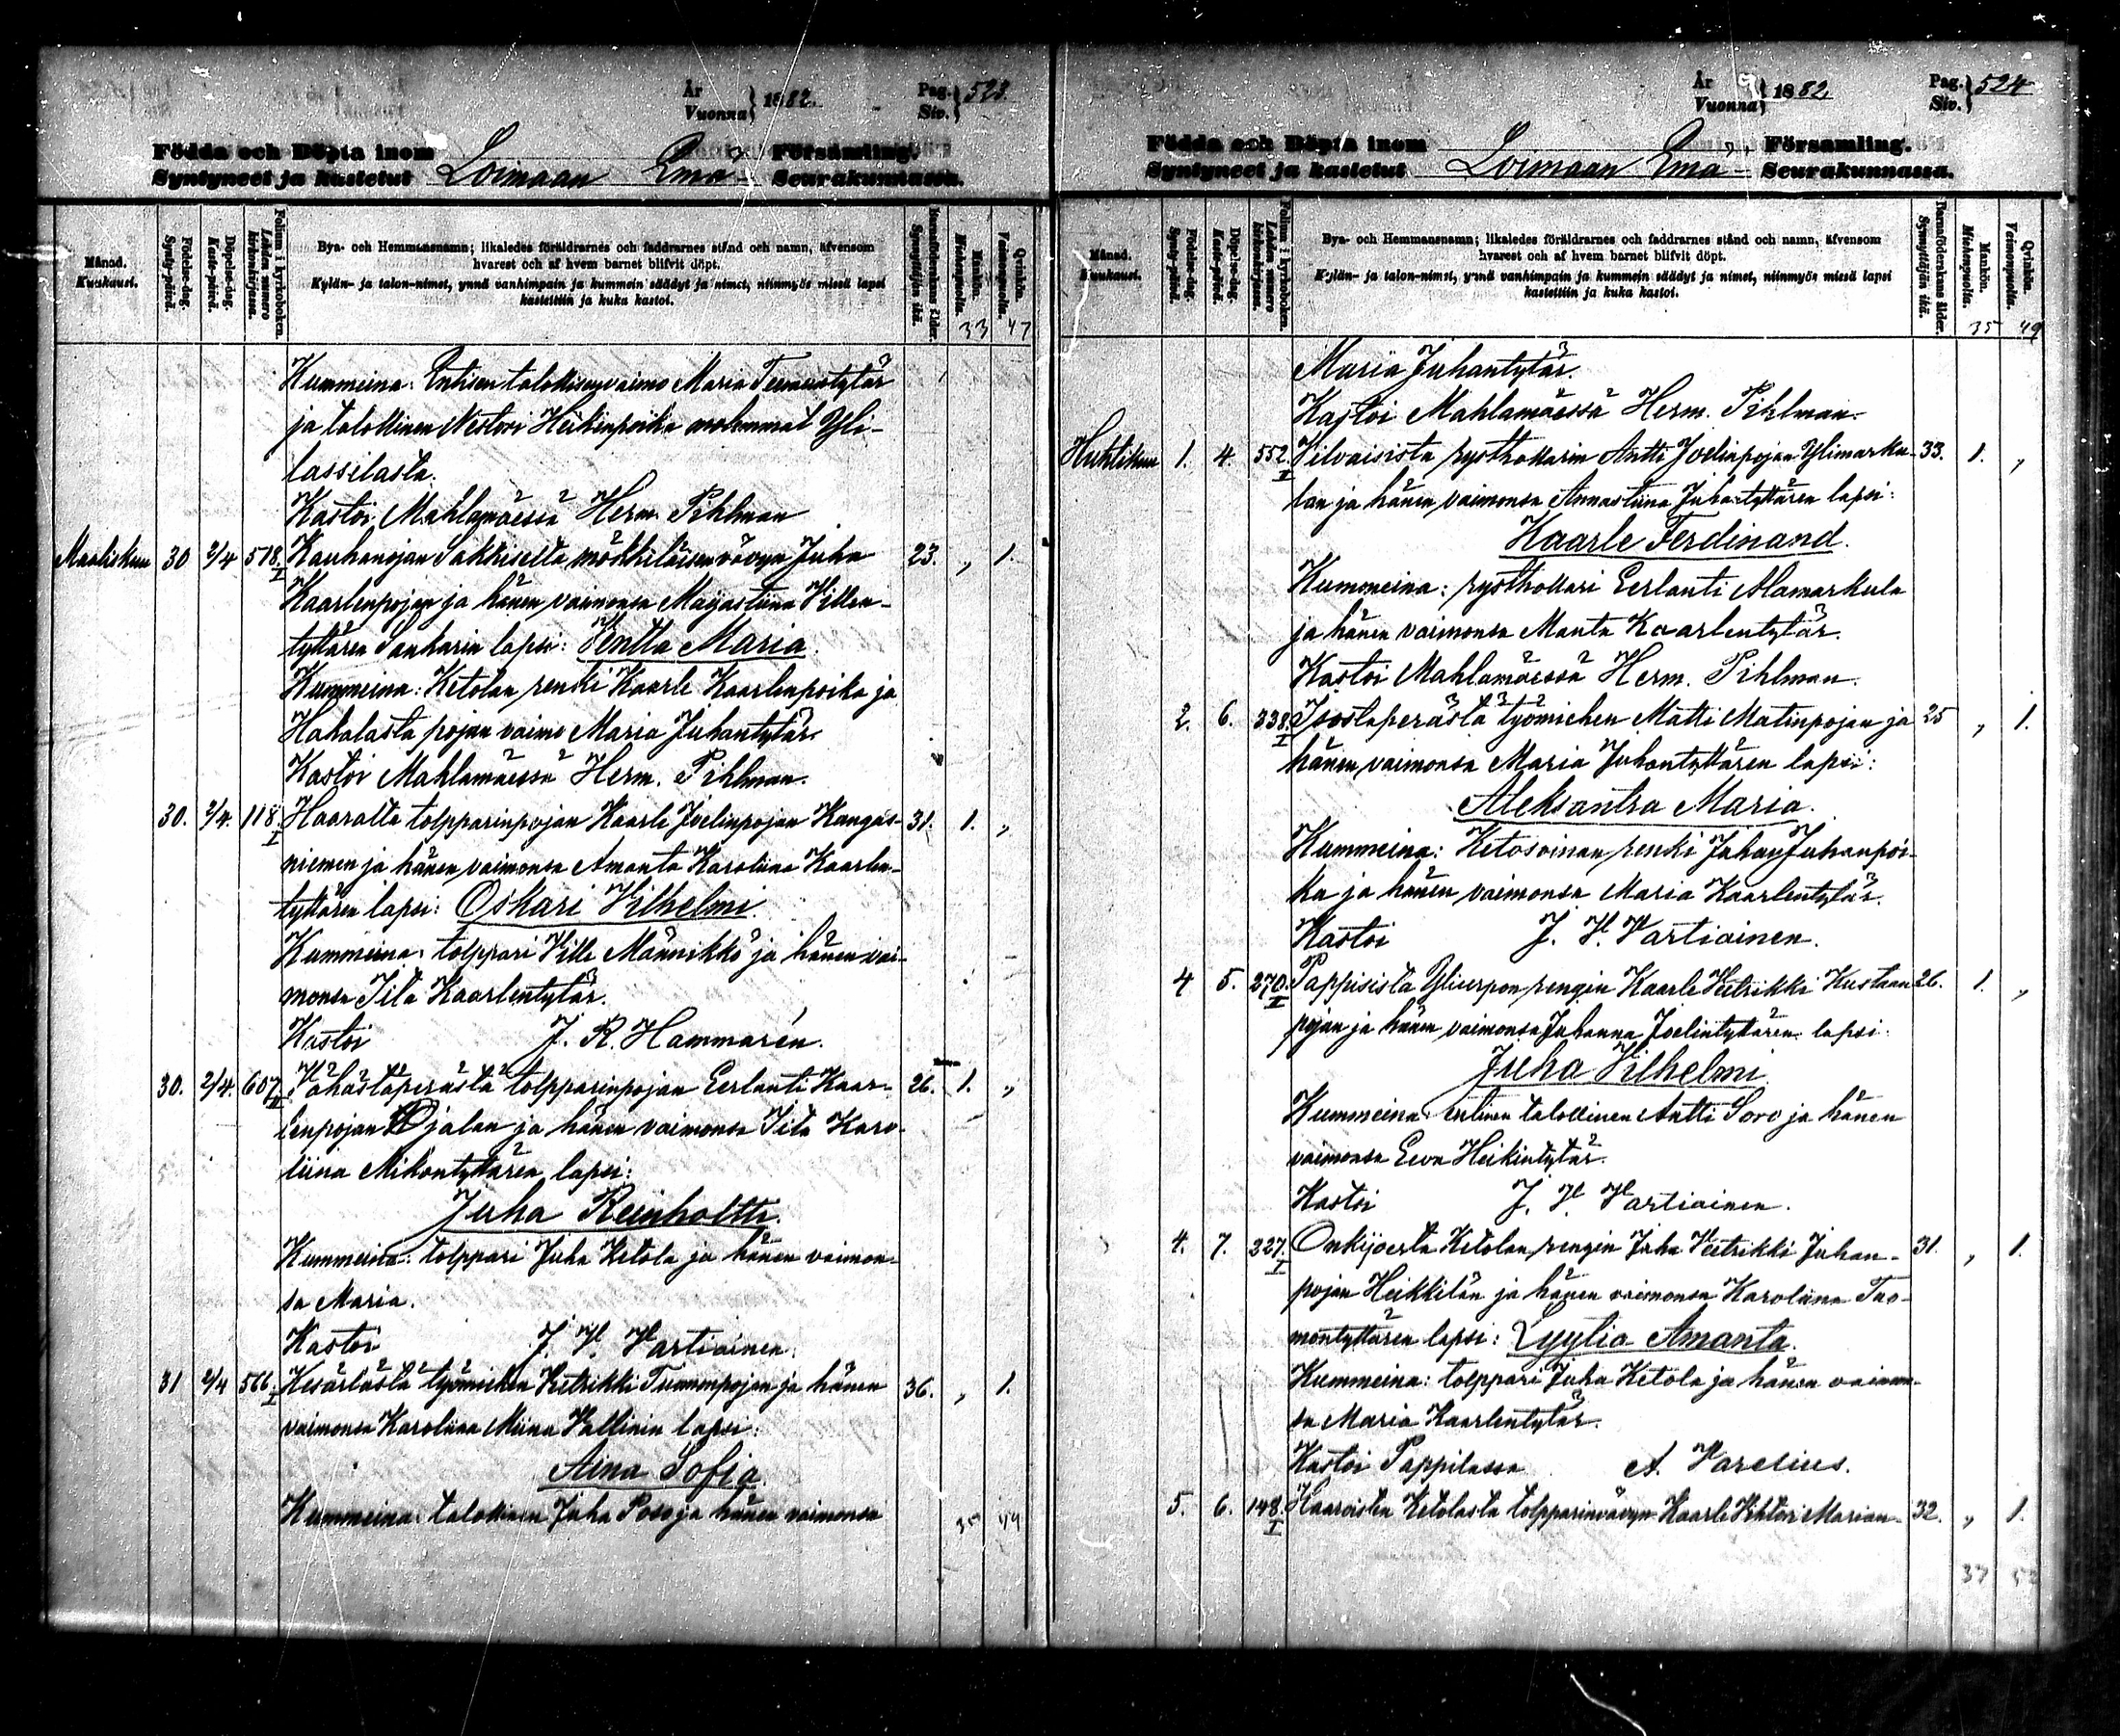 År
Vuonna } 1882.
Pag.
Siv. } 523.
Födda och Döpta inom
Syntyneet ja kastetut Loimaan Emä- Församling.
Seurakunnassa.
Månad.
Kuukausi.
Födelse-dag.
Synty-päivä.
Döpelse-dag.
Kaste-päivä.
Folium i kyrkoboken.
Lehden numero kirkonkirjassa.
Bya- och Hemmansnamn; likaledes föräldrarnes och faddrarnes stånd och namn, äfvensom
hvarest och af hvem barnet blifvit döpt.
Kylän- ja talon-nimet, ynnä vanhimpain ja kummein säädyt ja nimet, niinmyös missä lapsi
kastettiin ja kuka kastoi.
Barnaföderskans ålder.
Synnyttäjän ikä.
Mankön.
Miehenpuolia.
Qvinkön.
Vaimonpuolia.
33 47
Kummeina: Entisen talollisen vaimo Maria Tuomaantytär
ja talollinen Nestori Heikinpoika molemmat Yli-
lassilasta.
Kastoi Mahlamäessä Herm. Pihlman
Maaliskuu 30 2/4 518. I Kauhanojan Sakkiselta mökkiläisen vävyn Juha 23. „ 1.
Kaarlenpojan ja hänen vaimonsa Majastiina Villen-
tyttären Sankarin lapsi: Ventla Maria.
Kummeina: Ketolan renki Kaarle Kaarlenpoika ja
Hakalasta pojan vaimo Maria Juhantytär.
Kastoi Mahlamäessä Herm. Pihlman.
30. 2/4. 118. I Haaralta tolpparinpojan Kaarle Joelinpojan Kangas- 31. 1. „
niemen ja hänen vaimonsa Amanta Karoliina Kaarlen-
tyttären lapsi: Oskari Vilhelmi.
Kummeina: tolppari Ville Männikkö ja hänen vai-
monsa Iita Kaarlentytär.
Kastoi J. R. Hammarén.
30. 2/4. 607. II Vähästäperästä tolpparinpojan Eerlanti Kaar- 26. 1. „
lenpojan Ojalan ja hänen vaimonsa Iita Karo-
liina Mikontyttären lapsi:
Juha Reinholtti.
Kummeina: tolppari Juha Ketola ja hänen vaimon-
sa Maria.
Kastoi J. V. Vartiainen.
31 2/4 566. I Kesärlästä työmiehen Vetrikki Tuomonpojan ja hänen 36. „ 1.
vaimonsa Karoliina Miina Vallinin lapsi:
Aina Sofia.
Kummeina: talollinen Juha Poso ja hänen vaimonsa
35 49
År
Vuonna } 1882
Pag.
Siv. } 524
Födda och Döpta inom
Syntyneet ja kastetut Loimaan Emä- Församling.
Seurakunnassa.
Månad.
Kuukausi.
Födelse-dag.
Synty-päivä.
Döpelse-dag.
Kaste-päivä.
Folium i kyrkoboken.
Lehden numero kirkonkirjassa.
Bya- och Hemmansnamn; likaledes föräldrarnes och faddrarnes stånd och namn, äfvensom
hvarest och af hvem barnet blifvit döpt.
Kylän- ja talon-nimet, ynnä vanhimpain ja kummein säädyt ja nimet, niinmyös missä lapsi
kastettiin ja kuka kastoi.
Barnaföderskans ålder.
Synnyttäjän ikä.
Mankön.
Miehenpuolia.
Qvinkön.
Vaimonpuolia.
35 49
Maria Juhantytär.
Kastoi Mahlamäessä Herm. Pihlman.
Huhtikuu 1. 4. 552. I Vilvaisista rysthollarin Antti Joelinpojan Ylimarku- 33. 1. „
lan ja hänen vaimonsa Annastiina Juhantyttären lapsi:
Kaarle Ferdinand.
Kummeina: rysthollari Eerlanti Alamarkula
ja hänen vaimonsa Manta Kaarlentytär.
Kastoi Mahlamäessä Herm. Pihlman.
2. 6. 338. I Isostaperästä työmiehen Matti Matinpojan ja 25 „ 1.
hänen vaimonsa Maria Juhontyttären lapsi:
Aleksantra Maria.
Kummeina: Ketosoinan renki Juhan Juhanpoi-
ka ja hänen vaimonsa Maria Kaarlentytär.
Kastoi J. V. Vartiainen.
4 5. 270. I Pappisista Ylierpon rengin Kaarle Vetrikki Kustaan 26. 1. „
pojan ja hänen vaimonsa Juhanna Joelintyttären lapsi:
Juha Vilhelmi.
Kummeina: entinen talollinen Antti Soro ja hänen
vaimonsa Eeva Heikintytär.
Kastoi J. V. Vartiainen.
4. 7. 327. I Onkijoesta Ketolan rengin Juha Vetrikki Juhan- 31. „ 1.
pojan Heikkilän ja hänen vaimonsa Karoliina Tuo-
montyttären lapsi: Lyylia Amanta.
Kummeina: tolppari Juha Ketola ja hänen vaimon-
sa Maria Kaarlentytär.
Kastoi Pappilassa A. Varelius.
5. 6. 148. I Haaroista Ketolasta tolpparinvävyn Kaarle Vihtori Marian- 32. „ 1.
37 52